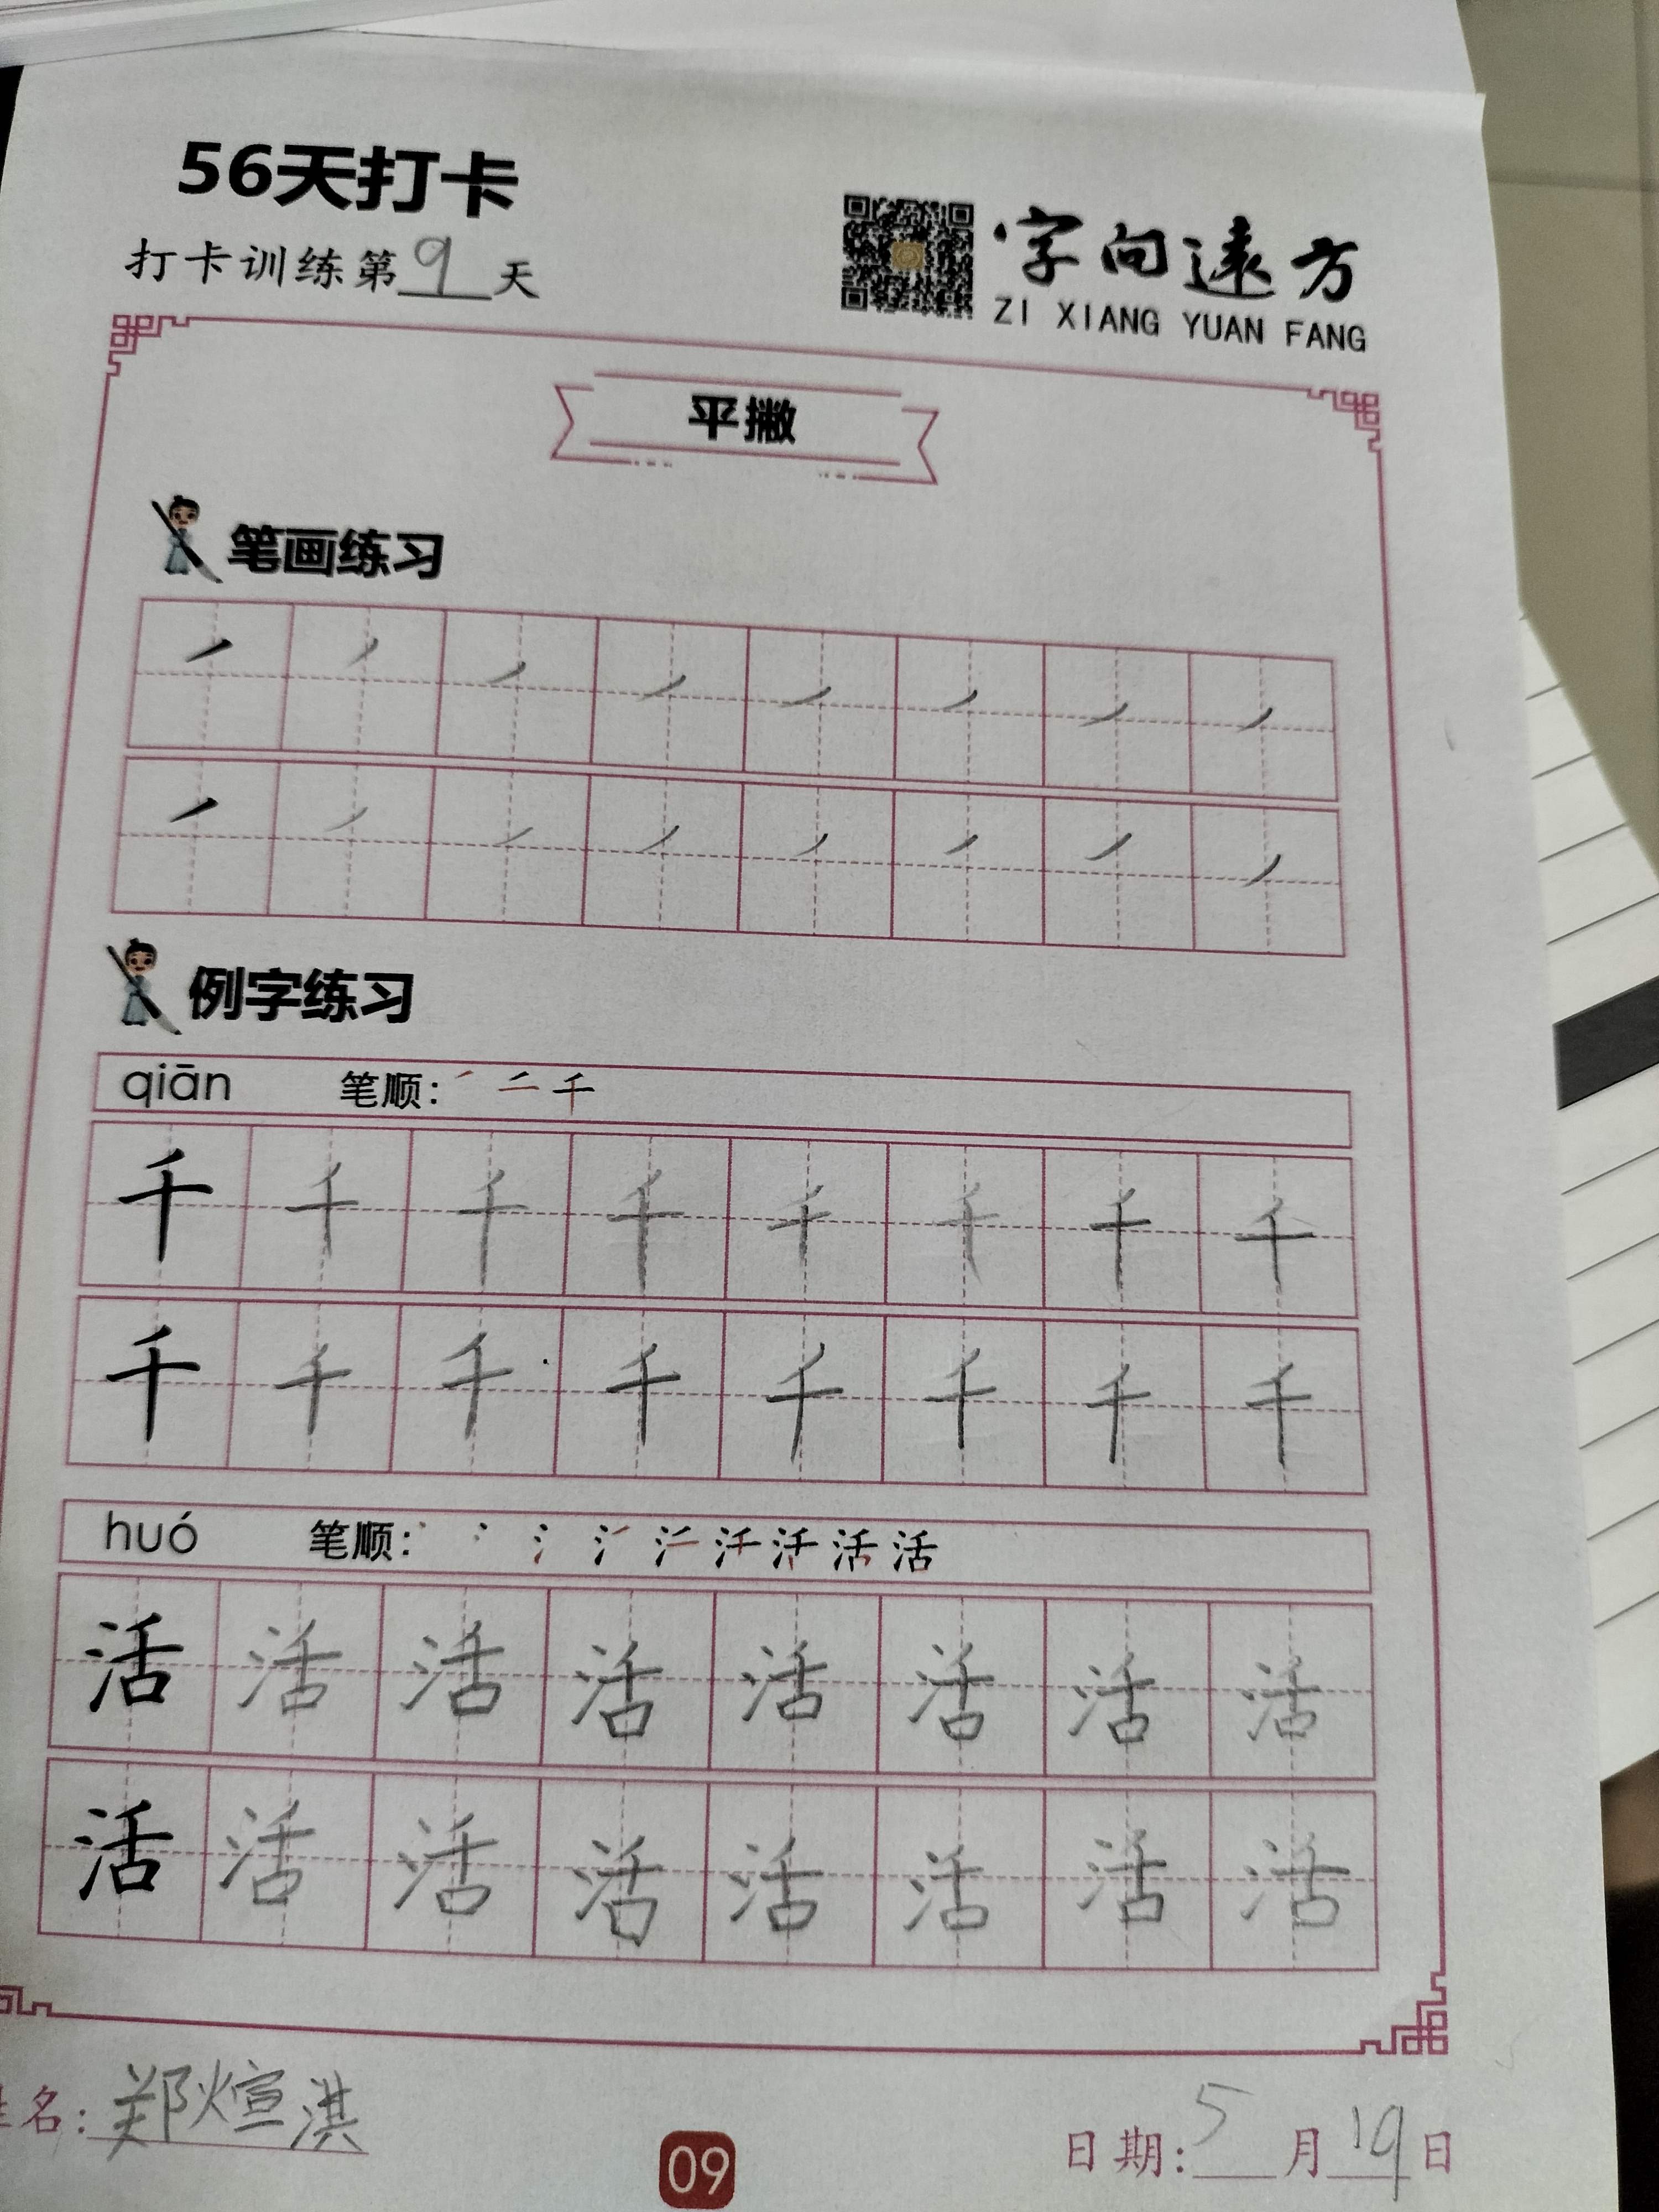 56天打卡
打卡训练第9天
字向遠方
ZI XIANG YUAN FANG
平撇
笔画练习
例字练习
qiān 笔顺: 丿 二 千
千 千 千 千 千 千 千 千
千 千 千 千 千 千 千 千
huó 笔顺: 活
活 活 活 活 活 活 活 活
活 活 活 活 活 活 活 活
姓名: 郑煊淇
09
日期: 5月19日